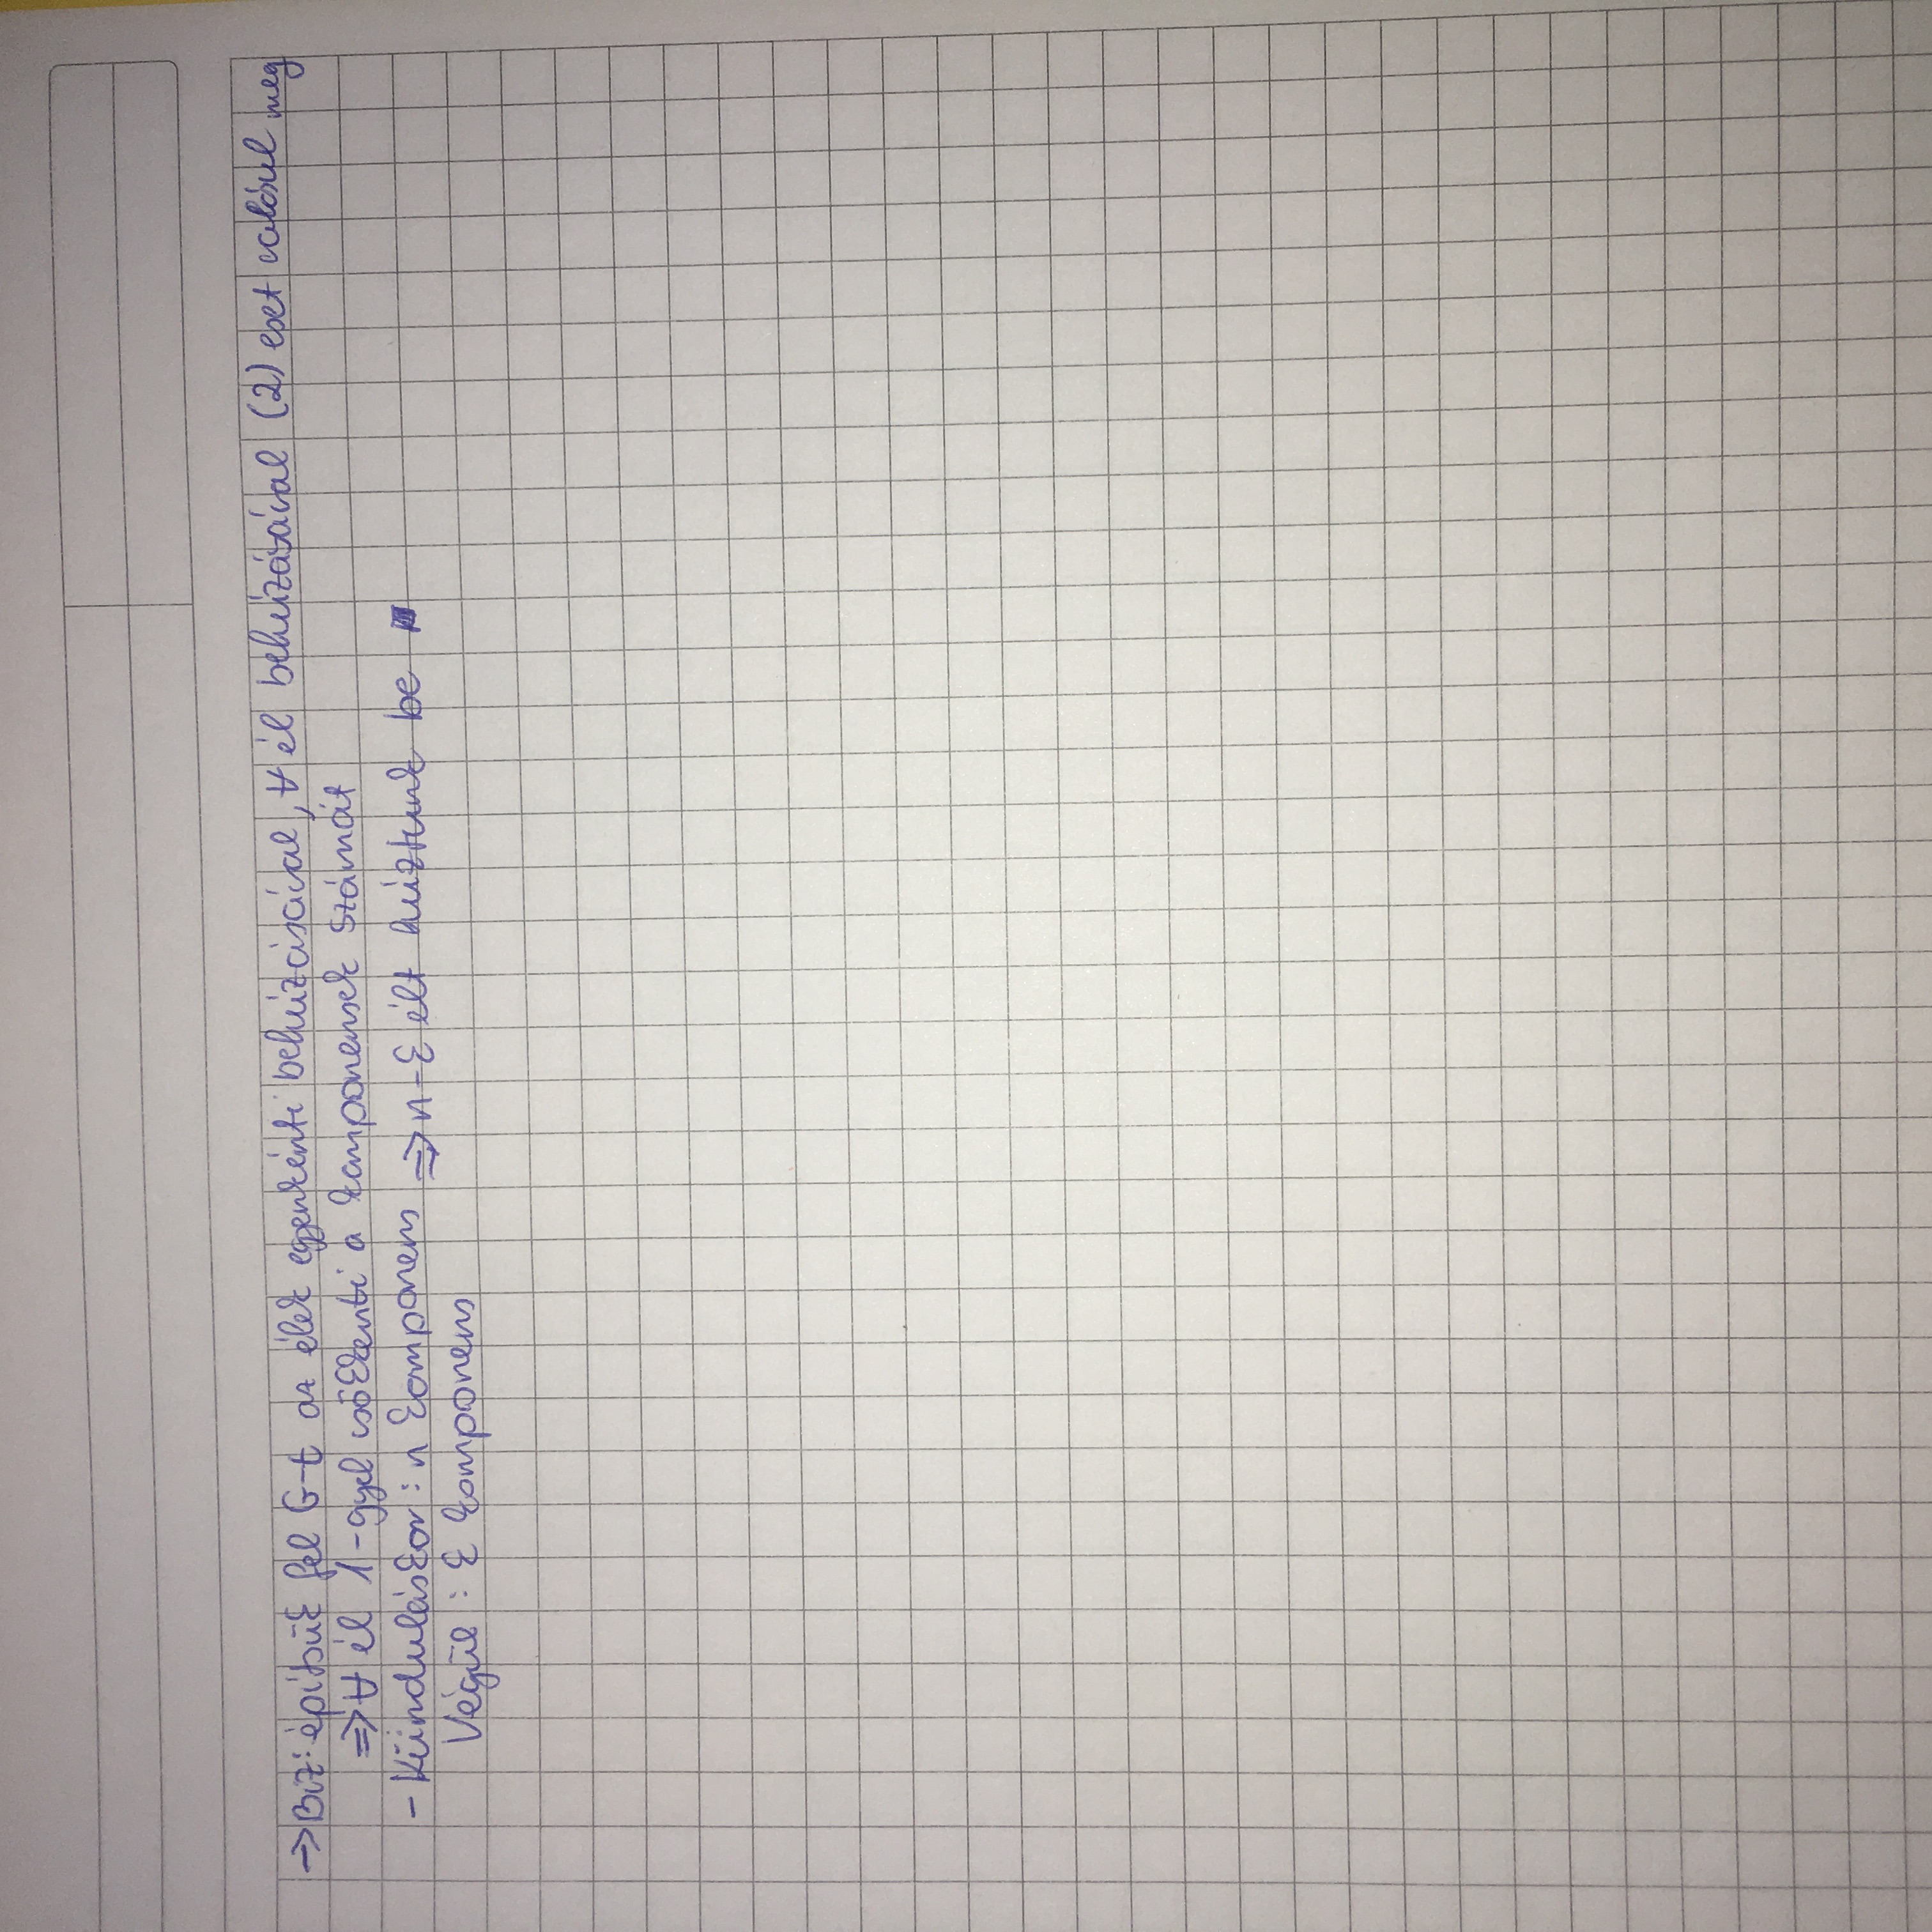 → Biz: építsük fel G-t az élek egyenkénti behúzásával, ∀ él behúzásával (2) eset valósul meg
⇒ ∀ él 1-gyel csökkenti a komponensek számát
- Kiinduláskor: n komponens ⇒ n-k élt húztunk be ∎
Végül: k komponens